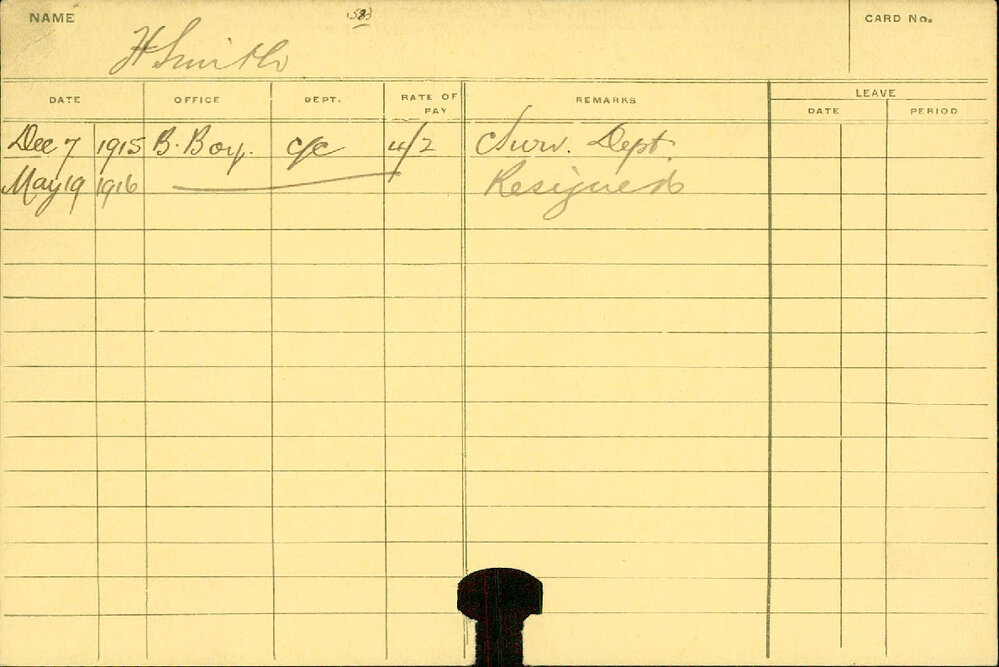 NAME 1583 CARD No.
H Smith
DATE OFFICE DEPT. RATE OF PAY REMARKS LEAVE
DATE PERIOD
Dec 7 1915 B. Boy. c/c 4/2 Surv. Dept.
May 19 1916 Resigned